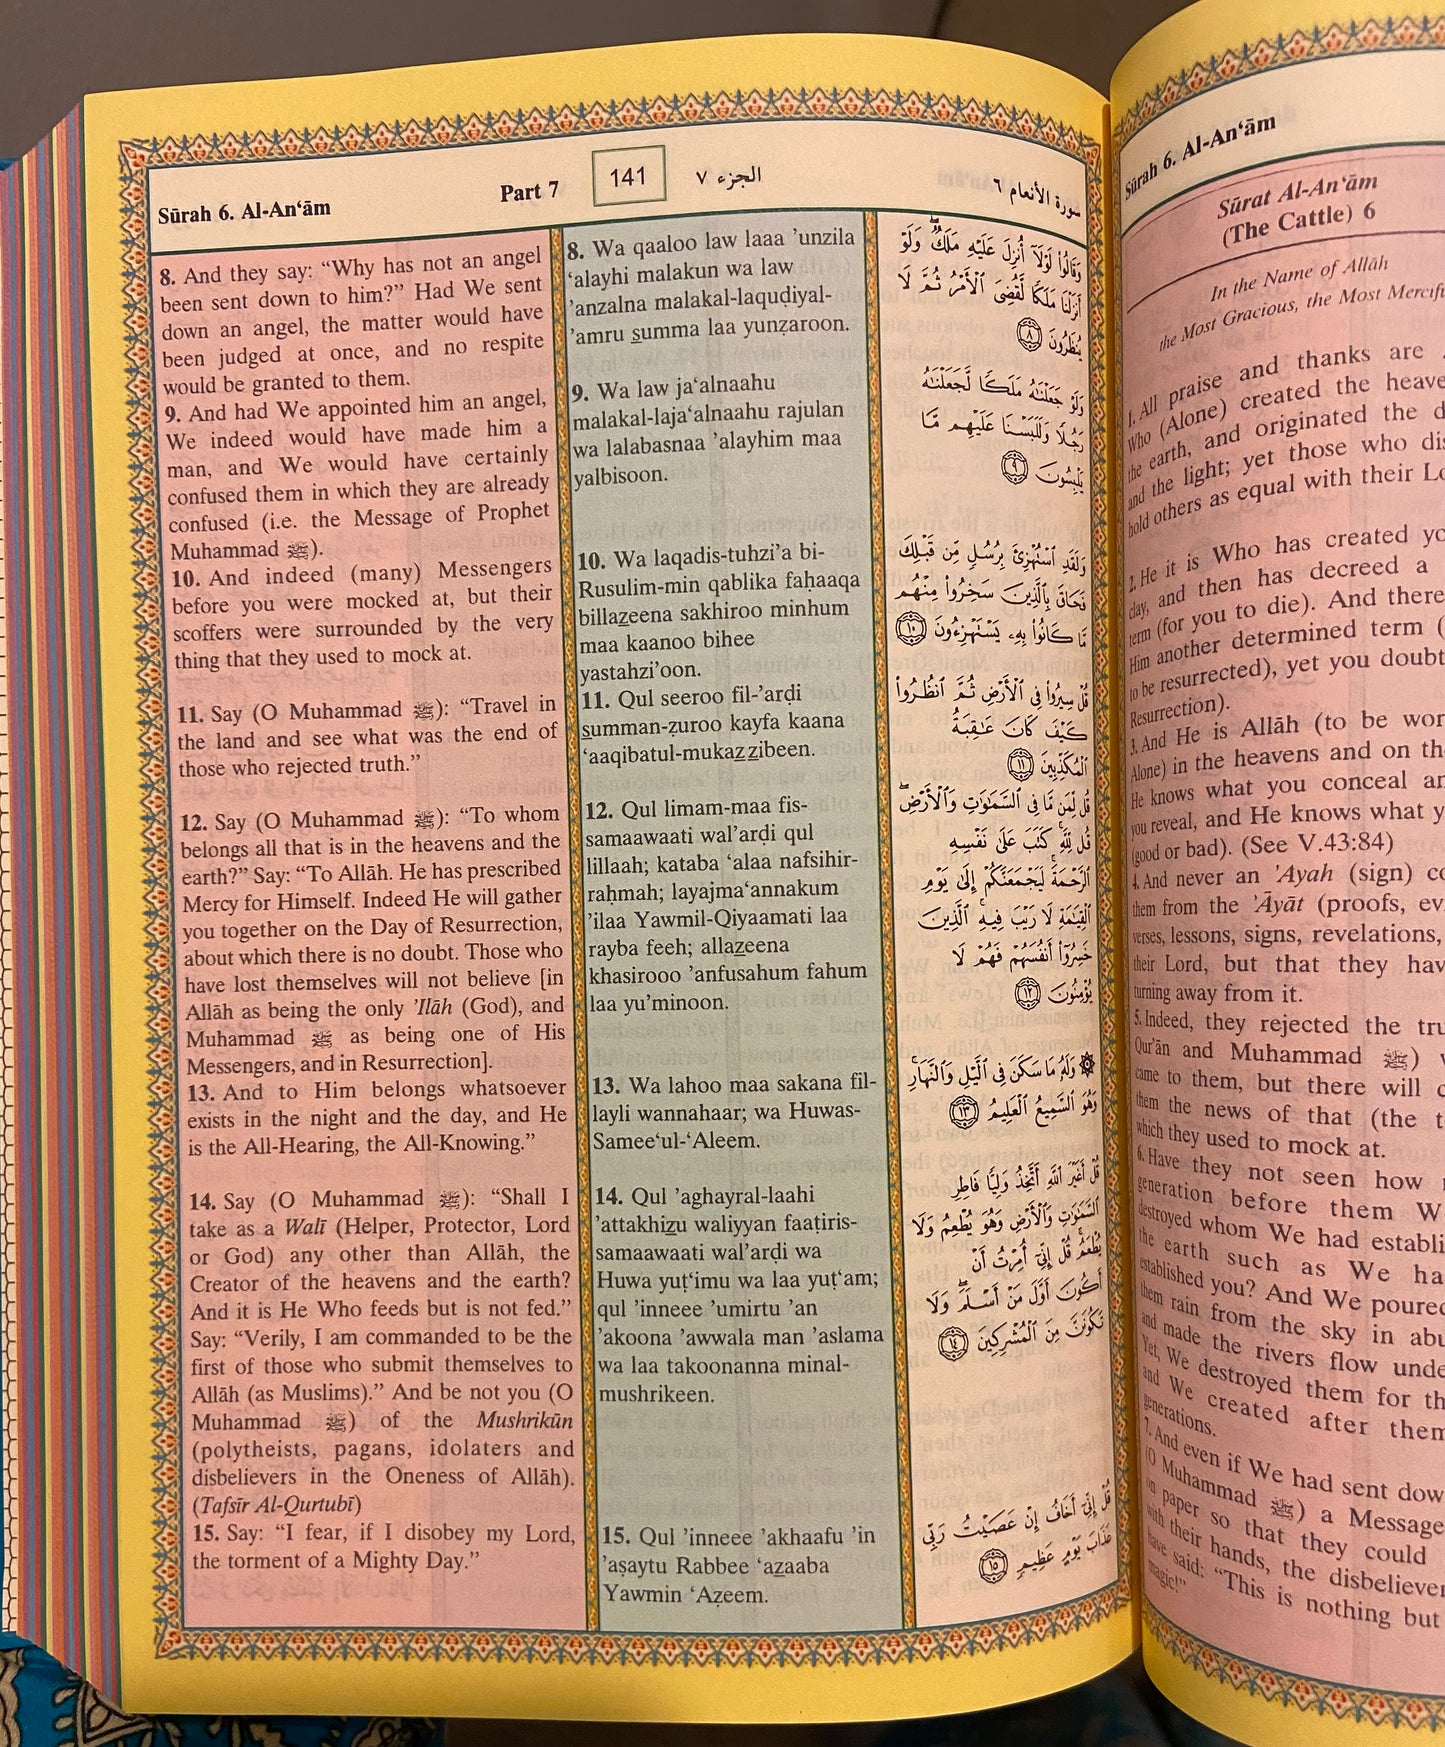 Sūrah 6. Al-An‘ām
Part 7
141
الجزء ٧
سورة الأنعام ٦
8. And they say: “Why has not an angel
been sent down to him?” Had We sent
down an angel, the matter would have
been judged at once, and no respite
would be granted to them.
9. And had We appointed him an angel,
We indeed would have made him a
man, and We would have certainly
confused them in which they are already
confused (i.e. the Message of Prophet
Muhammad ﷺ).
10. And indeed (many) Messengers
before you were mocked at, but their
scoffers were surrounded by the very
thing that they used to mock at.
11. Say (O Muhammad ﷺ): “Travel in
the land and see what was the end of
those who rejected truth.”
12. Say (O Muhammad ﷺ): “To whom
belongs all that is in the heavens and the
earth?” Say: “To Allāh. He has prescribed
Mercy for Himself. Indeed He will gather
you together on the Day of Resurrection,
about which there is no doubt. Those who
have lost themselves will not believe [in
Allāh as being the only ’Ilāh (God), and
Muhammad ﷺ as being one of His
Messengers, and in Resurrection].
13. And to Him belongs whatsoever
exists in the night and the day, and He
is the All-Hearing, the All-Knowing.”
14. Say (O Muhammad ﷺ): “Shall I
take as a Walī (Helper, Protector, Lord
or God) any other than Allāh, the
Creator of the heavens and the earth?
And it is He Who feeds but is not fed.”
Say: “Verily, I am commanded to be the
first of those who submit themselves to
Allāh (as Muslims).” And be not you (O
Muhammad ﷺ) of the Mushrikūn
(polytheists, pagans, idolaters and
disbelievers in the Oneness of Allāh).
(Tafsīr Al-Qurtubī)
15. Say: “I fear, if I disobey my Lord,
the torment of a Mighty Day.”
8. Wa qaaloo law laaa ’unzila
‘alayhi malakun wa law
’anzalna malakal-laquḍiyal-
’amru summa laa yunẓaroon.
9. Wa law ja‘alnaahu
malakal-laja‘alnaahu rajulan
wa lalabasnaa ’alayhim maa
yalbisoon.
10. Wa laqadis-tuhzi’a bi-
Rusulim-min qablika faḥaaqa
billazeena sakhiroo minhum
maa kaanoo bihee
yastahzi’oon.
11. Qul seeroo fil-’arḍi
summan-ẓuroo kayfa kaana
‘aaqibatul-mukazzibeen.
12. Qul limam-maa fis-
samaawaati wal’arḍi qul
lillaah; kataba ‘alaa nafsihir-
raḥmah; layajma‘annakum
’ilaa Yawmil-Qiyaamati laa
rayba feeh; allazeena
khasirooo ’anfusahum fahum
laa yu’minoon.
13. Wa lahoo maa sakana fil-
layli wannahaar; wa Huwas-
Samee‘ul-‘Aleem.
14. Qul ’aghayral-laahi
’attakhizu waliyyan faaṭiris-
samaawaati wal’arḍi wa
Huwa yuṭ‘imu wa laa yuṭ‘am;
qul ’inneee ’umirtu ’an
’akoona ’awwala man ’aslama
wa laa takoonanna minal-
mushrikeen.
15. Qul ’inneee ’akhaafu ’in
‘aṣaytu Rabbee ‘azaaba
Yawmin ‘Aẓeem.
وَقَالُوا۟ لَوْلَآ أُنزِلَ عَلَيْهِ مَلَكٌ ۖ وَلَوْ
أَنزَلْنَا مَلَكًا لَّقُضِىَ ٱلْأَمْرُ ثُمَّ لَا
يُنظَرُونَ ٨
وَلَوْ جَعَلْنَـٰهُ مَلَكًا لَّجَعَلْنَـٰهُ
رَجُلًا وَلَلَبَسْنَا عَلَيْهِم مَّا
يَلْبِسُونَ ٩
وَلَقَدِ ٱسْتُهْزِئَ بِرُسُلٍ مِّن قَبْلِكَ
فَحَاقَ بِٱلَّذِينَ سَخِرُوا۟ مِنْهُم
مَّا كَانُوا۟ بِهِۦ يَسْتَهْزِءُونَ ١٠
قُلْ سِيرُوا۟ فِى ٱلْأَرْضِ ثُمَّ ٱنظُرُوا۟
كَيْفَ كَانَ عَـٰقِبَةُ
ٱلْمُكَذِّبِينَ ١١
قُل لِّمَن مَّا فِى ٱلسَّمَـٰوَٰتِ وَٱلْأَرْضِ ۖ
قُل لِّلَّهِ ۚ كَتَبَ عَلَىٰ نَفْسِهِ
ٱلرَّحْمَةَ ۚ لَيَجْمَعَنَّكُمْ إِلَىٰ يَوْمِ
ٱلْقِيَـٰمَةِ لَا رَيْبَ فِيهِ ۚ ٱلَّذِينَ
خَسِرُوٓا۟ أَنفُسَهُمْ فَهُمْ لَا
يُؤْمِنُونَ ١٢
۞ وَلَهُۥ مَا سَكَنَ فِى ٱلَّيْلِ وَٱلنَّهَارِ ۚ
وَهُوَ ٱلسَّمِيعُ ٱلْعَلِيمُ ١٣
قُلْ أَغَيْرَ ٱللَّهِ أَتَّخِذُ وَلِيًّا فَاطِرِ
ٱلسَّمَـٰوَٰتِ وَٱلْأَرْضِ وَهُوَ يُطْعِمُ وَلَا
يُطْعَمُ ۗ قُلْ إِنِّىٓ أُمِرْتُ أَنْ
أَكُونَ أَوَّلَ مَنْ أَسْلَمَ ۖ وَلَا
تَكُونَنَّ مِنَ ٱلْمُشْرِكِينَ ١٤
قُلْ إِنِّىٓ أَخَافُ إِنْ عَصَيْتُ رَبِّى
عَذَابَ يَوْمٍ عَظِيمٍ ١٥
Sūrah 6. Al-An‘ām
Sūrat Al-An‘ām
(The Cattle) 6
In the Name of Allāh
the Most Gracious, the Most
1. All praise and thanks are
Who (Alone) created the
the earth, and originated the
and the light; yet those who
hold others as equal with their
2. He it is Who has created
clay, and then has decreed a
term (for you to die). And
Him another determined term
to be resurrected), yet you doubt
Resurrection).
3. And He is Allāh (to be
Alone) in the heavens and on
He knows what you conceal
you reveal, and He knows what
(good or bad). (See V.43:84)
4. And never an ’Ayah (sign)
them from the ’Āyāt (proofs,
verses, lessons, signs, revelations,
their Lord, but that they
turning away from it.
5. Indeed, they rejected the
Qur’ān and Muhammad ﷺ)
came to them, but there will
them the news of that (the
which they used to mock at.
6. Have they not seen how
generation before them
destroyed whom We had
the earth such as We
established you? And We poured
them rain from the sky in
and made the rivers flow
Yet, We destroyed them for
and We created after
generations.
7. And even if We had sent
(O Muhammad ﷺ) a
on paper so that they could
with their hands, the
have said: “This is nothing but
magic!”